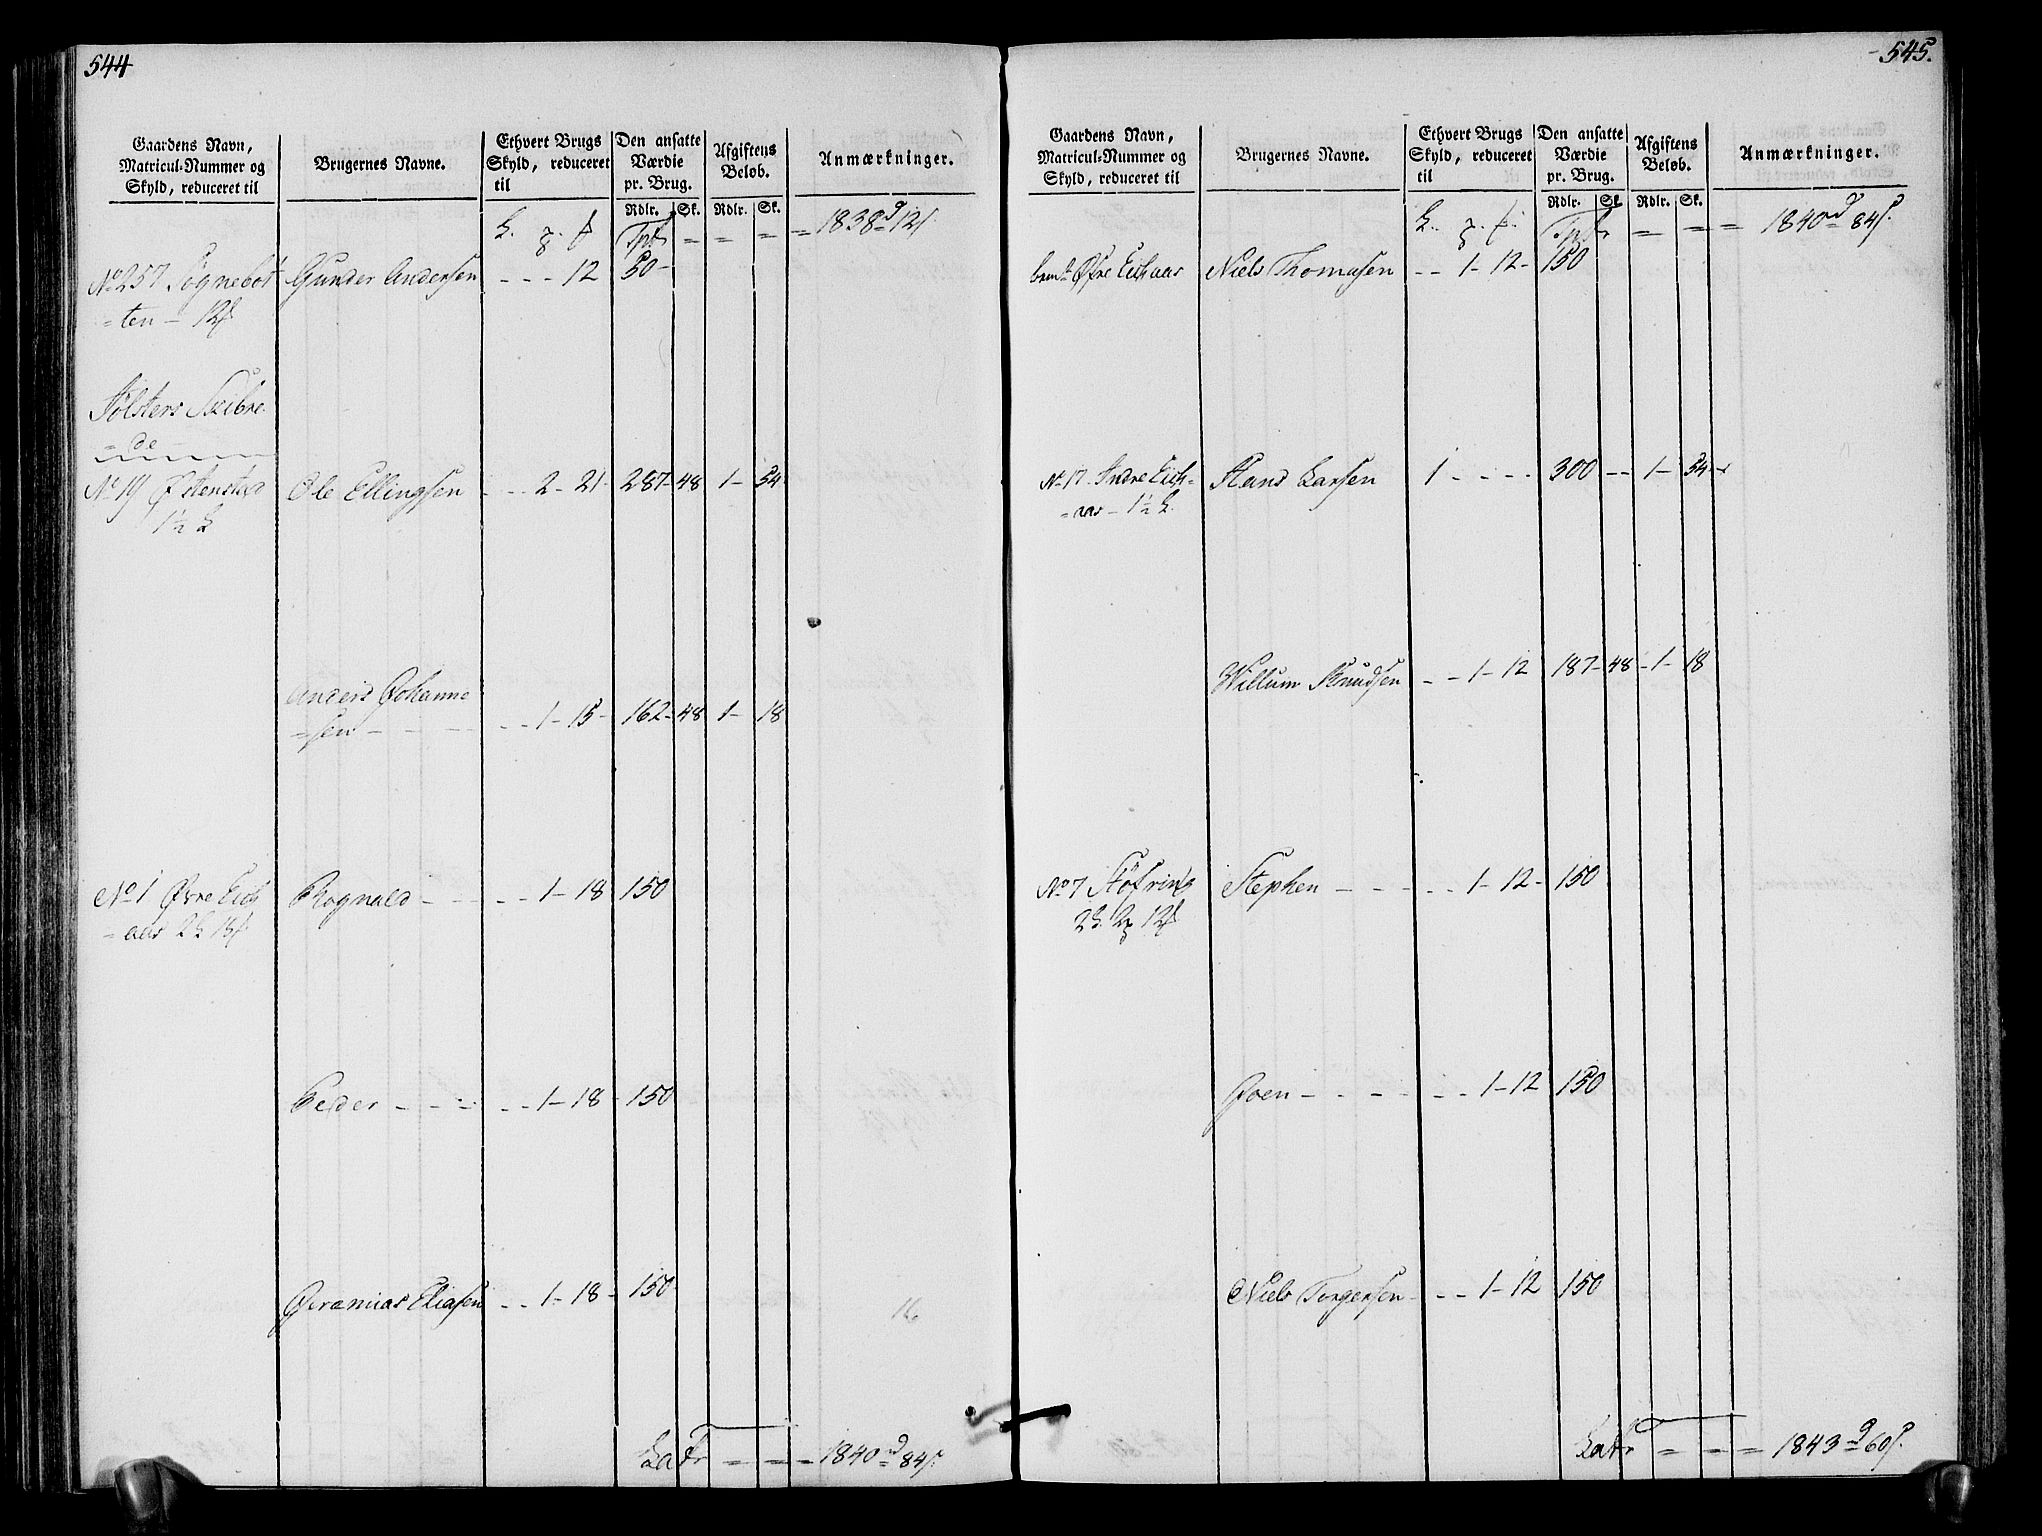 544
Gaardens Navn,
Matricul-Nummer og
Skyld, reduceret til
Brugernes Navne.
Ethvert Brugs
Skyld, reduceret
til
Den ansatte
Værdie
pr. Brug.
Afgiftens
Beløb.
Anmærkninger.
Rdlr. Sk. Rdlr. Sk.
Tpt = = = = 1838 d 12 s
No 257 Sögnebot Gunder Andersen - - - 12 50 -
= ten - 12
Jølsters Skibre
= de
No 19 Østenstad Ole Ellingsen - - 2 - 21 - 287 - 48 1 - 54
1½ L
Anders Johanne
= sen - - - - 1 - 15 - 162 - 48 1 - 18
No 1 Øvre Eich Rognald - - - - 1 - 18 150
= aas 2
Peder - - - - - 1 - 18 - 150
Jeremias Eliasen - - 1 - 18 - 150
Latr = = = 1840 d 84 s.
545.
Gaardens Navn,
Matricul-Nummer og
Skyld, reduceret til
Brugernes Navne.
Ethvert Brugs
Skyld, reduceret
til
Den ansatte
Værdie
pr. Brug.
Afgiftens
Beløb.
Anmærkninger.
Rdlr. Sk. Rdlr. Sk.
Tpt = = = 1840 d 84 s.
bem.te Øvre Eichaas Niels Thomasen - - 1 - 12 - 150
No 17 Indre Eich- Hans Larsen 1 - - - - 300 - - 1 - 54
= aas - 1½ L.
Willum Knudsen - - 1 - 12 187 - 48 - 1 - 18
No 7 Støfring Stephen - - - - - 1 - 12 - 150
2 L. 2 12
Joen - - - - - - 1 - 12 150
Niels Torgersen - - - 1 - 12 150
Latr = = = 1843 d 60 s.